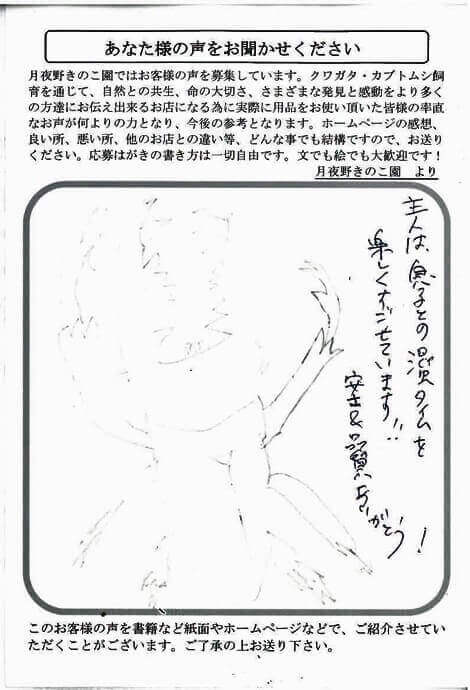 あなた様の声をお聞かせください
月夜野きのこ園ではお客様の声を募集しています。クワガタ・カブトムシ飼
育を通じて、自然との共生、命の大切さ、さまざまな発見と感動をより多く
の方達にお伝え出来るお店になる為に実際に用品をお使い頂いた皆様の率直
なお声が何よりの力となり、今後の参考となります。ホームページの感想、
良い所、悪い所、他のお店との違い等、どんな事でも結構ですので、お送り
ください。応募はがきの書き方は一切自由です。文でも絵でも大歓迎です!
月夜野きのこ園 より
主人は、息子との濃タイムを
楽しくすごせています!!
安さ&品質ありがとう!
このお客様の声を書籍など紙面やホームページなどで、ご紹介させてい
ただくことがございます。ご了承の上お送り下さい。